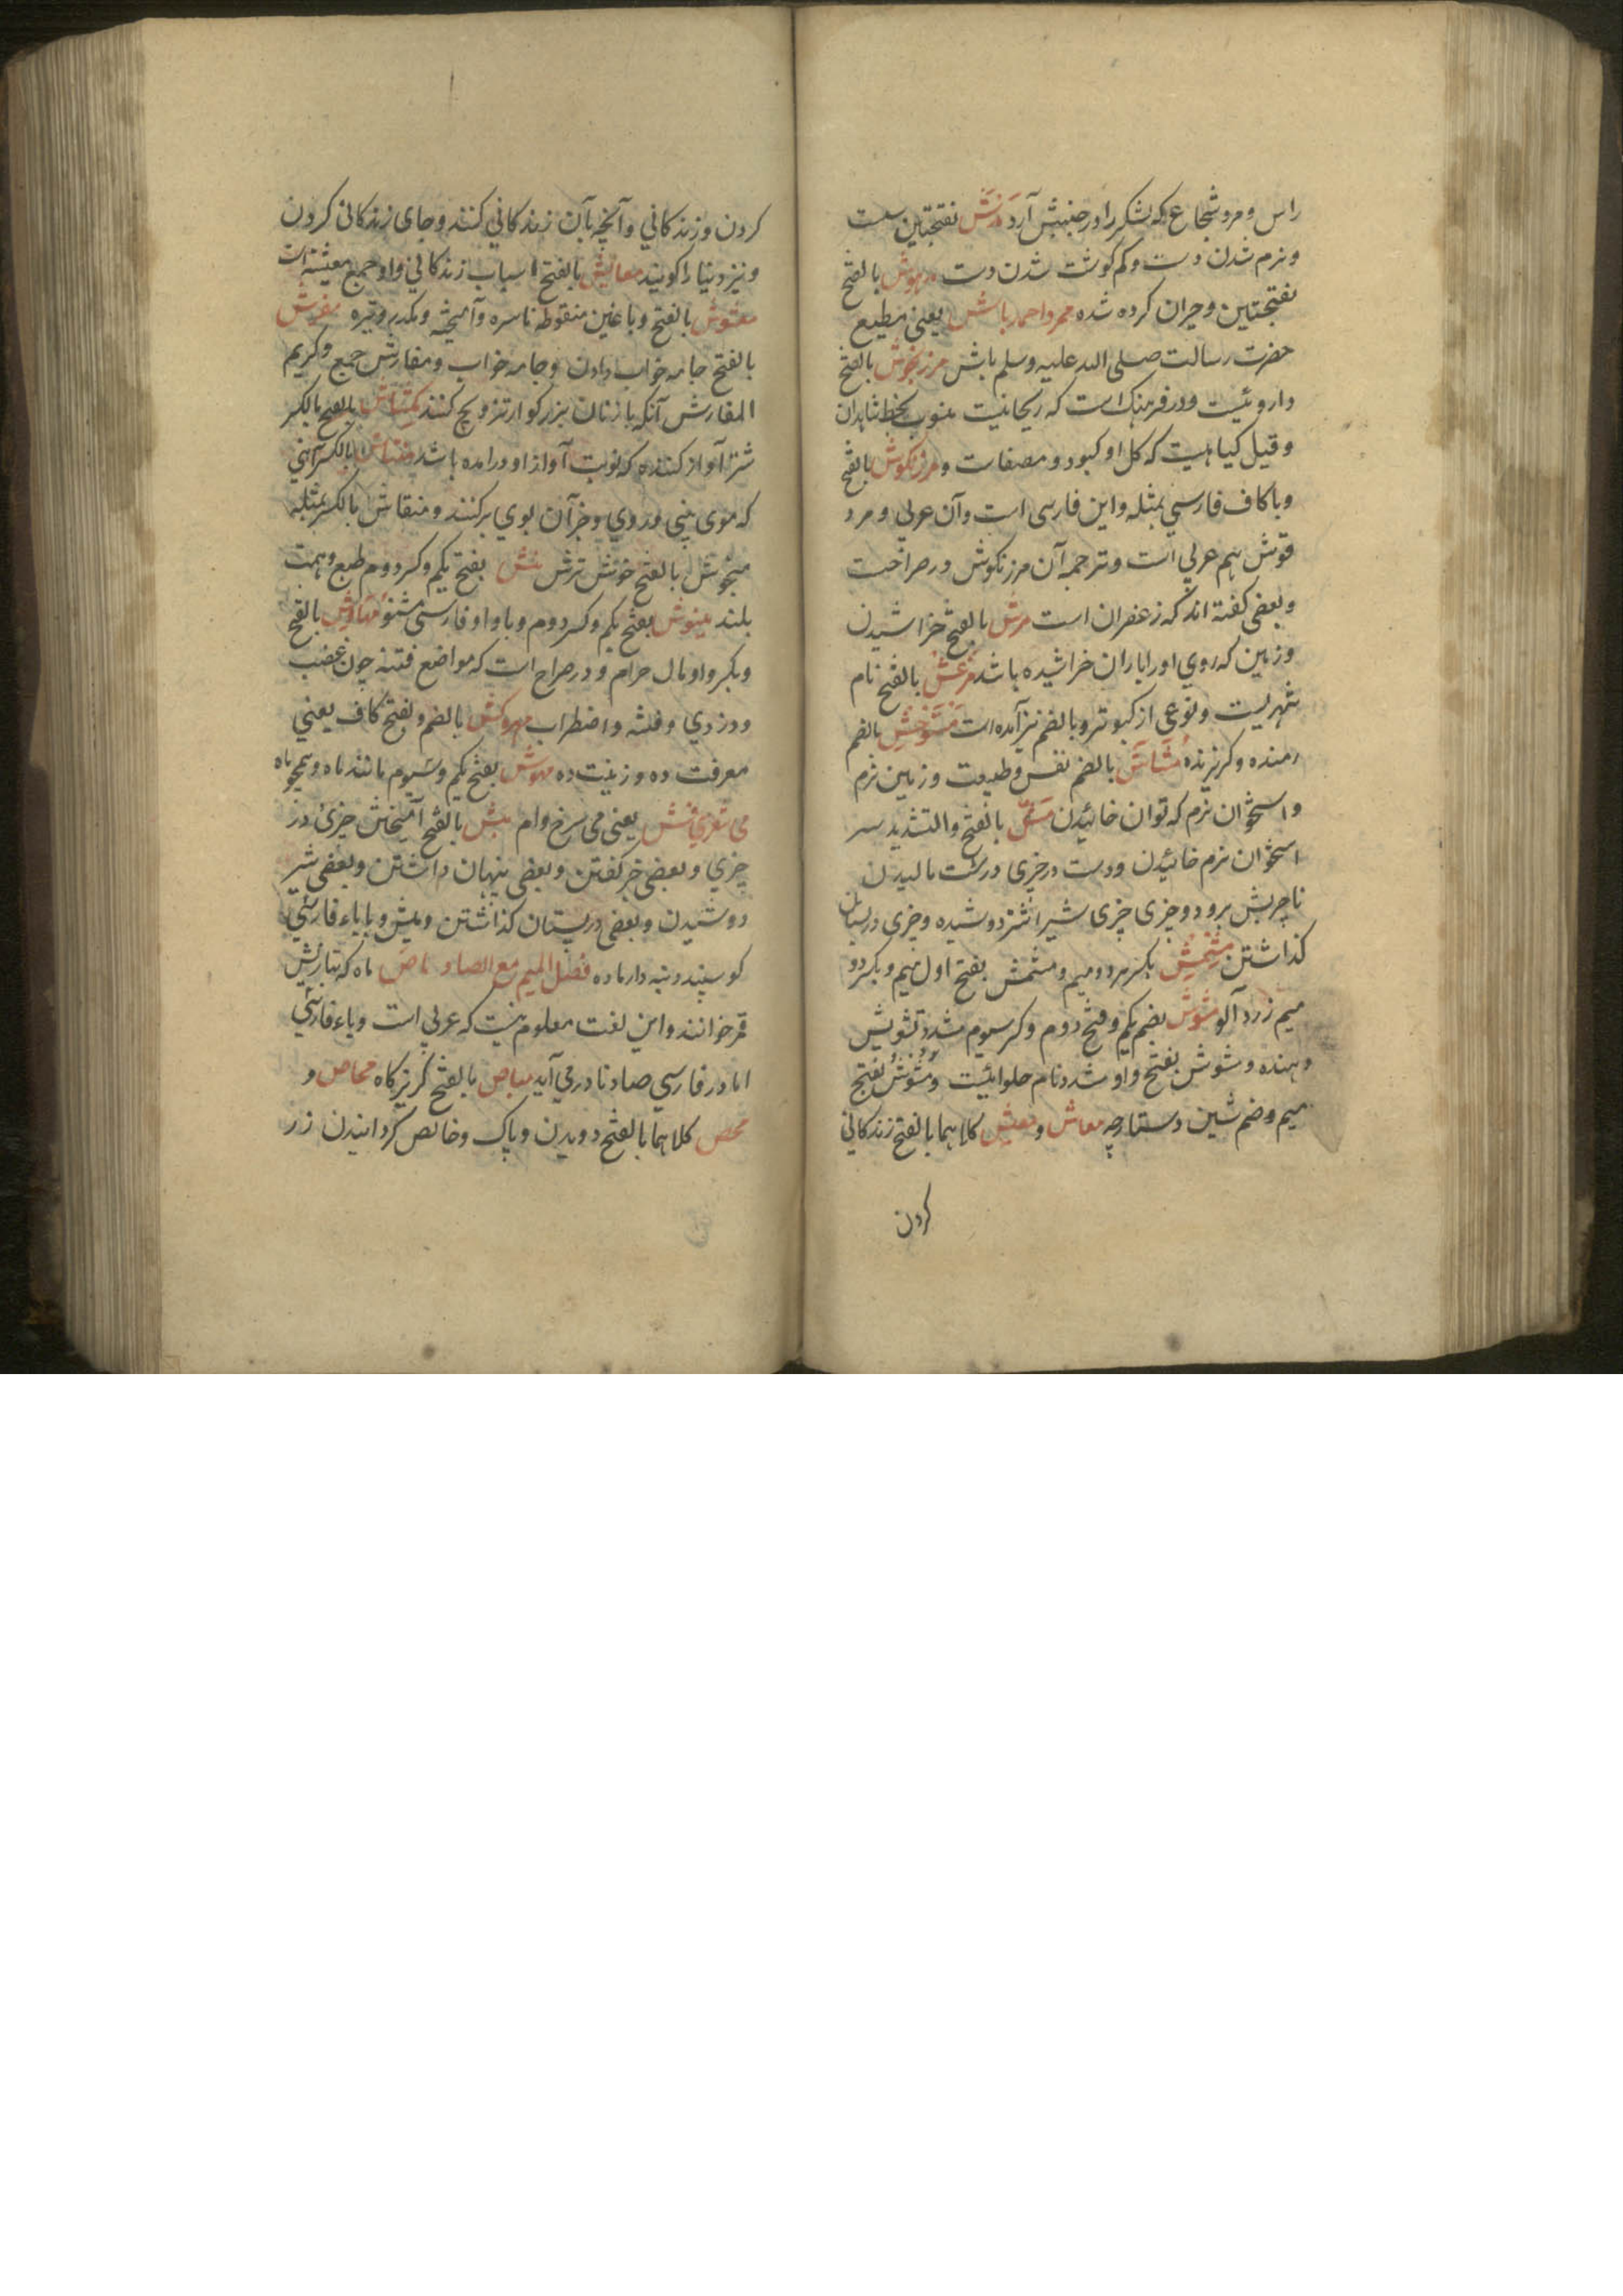 راس و مرد شجاع که لشکر را در جنبش آرد مدش بفتحتین سست
و نرم شدن دست و کم گوشت شدن دست مدهوش بالفتح
بفتحتین و حیران کرده شده محمد احمد باش یعنی مطیع
حضرت رسالت صلی الله علیه وسلم باش مرزنجوش بالفتح
داروئیست و در فرهنک است که ریحانیت منسوب بخط شاهدان
و قیل کیاهیست که کل او کبود و مصفات و مرزنکوش بالفتح
و با کاف فارسی بمثله و این فارسی است و آن عربی و مرد
قوش هم عربی است و ترجمه آن مرزنکوش در صراحت
و بعضی کفته اند که زعفران است مرش بالفتح خراشیدن
و زمین که روی او را باران خراشیده باشد مرعش بالفتح نام
شهریست و نوعی از کبوتر و بالضم نیز آمده است متوحش بالضم
رمنده و کریزنده مشاش بالضم نفس و طبیعت و زمین نرم
و استخوان نرم که توان خائیدن مش بالفتح والتشدید سر
استخوان نرم خائیدن و دست در چیزی درشت مالیدن
تا چربش برود و چیزی چیزی شیر اشتر دوشیده و چیزی در پستان
کذاشتن مشمش بکسر هر دو میم و مشمش بفتح اول هم و بکسر دو
میم زرد آلو مشوش بضم یکم و فتح دوم و کسر سیوم مشدد تشویش
دهنده و مشوش بفتح واو مشدد نام حلوائیست و مشوش بفتح
میم و ضم شین دستارچه معاش و معیش کلاهما بالفتح زندکانی
کردن
کردن و زندکانی و آنچه بآن زندکانی کنند و جای زندکانی کردن
و نیز دنیا را کویند معایش بالفتح اسباب زندکانی و او جمع معیشة است
مغشوش بالفتح و با غین منقوطه ناسره و آمیخته و مکدر و تیره مفرش
بالفتح جامه خواب دادن و جامه خواب و مفارش جمع و کریم
المفارش آنکه با زنان بزرکوار تزویج کنند بالفتح بالکسر
شتر آواز کننده که نوبت آواز او در امده باشد منتاش بالکسر آهنی
که موی بینی و روی و جز آن بوی برکنند و منقاش بالکسر بمثله
منجوش بالفتح خوش ترش منش بفتح یکم و کسر دوم طبع و همت
بلند مینوش بفتح یکم و کسر دوم و با واو فارسی مشنو مهاوش بالفتح
و بکسر واو مال حرام و در صراح است که مواضع فتنه چون غصب
و دزدی و فتنه و اضطراب مهروکش بالضم و بفتح کاف یعنی
معرفت ده و زینت ده مهوش بفتح یکم و سیوم مانند ماه و همچو ماه
یعنی می سرخ وام میش بالفتح آمیختن چیزی در
چیزی و بعضی خبر کفتن و بعضی پنهان داشتن و بعضی شیر
دوشیدن و بعضی در پستان کذاشتن و میش و با یاء فارسی
کوسپند دنبه دار ماده فصل المیم مع الصاد ماص ماه که تبازیش
قمر خوانند و این لغت معلوم نیست که عربی است و یا فارسی
اما در فارسی صاد نادر می آید مناص بالفتح کریزکاه محاص و
محص کلاهما بالفتح دویدن و پاک و خالص کردانیدن زر